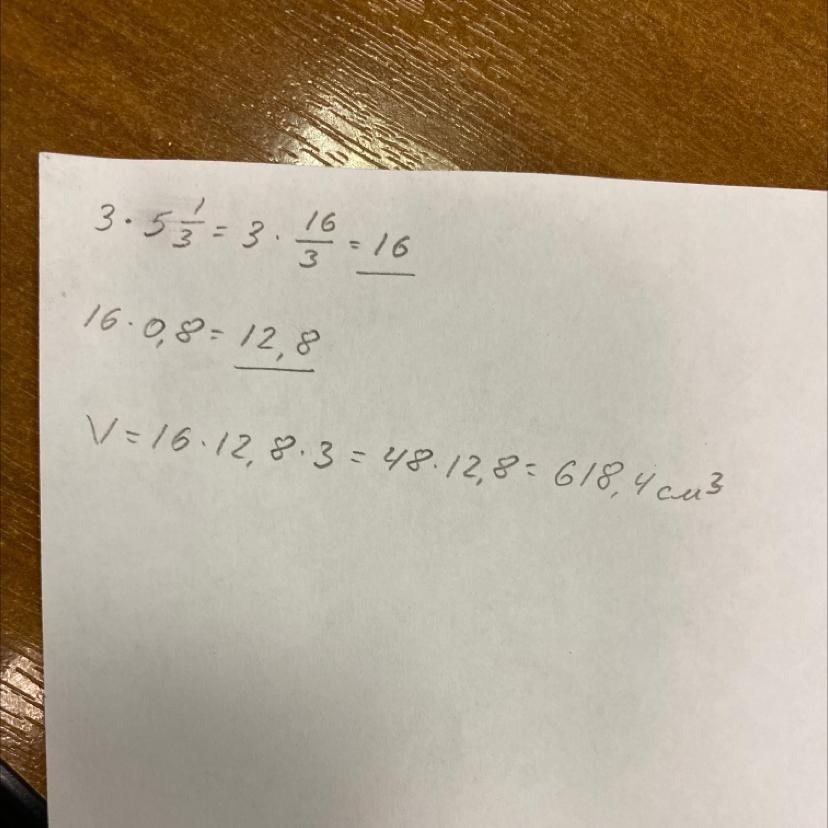 3 · 5 1/3 = 3 · 16/3 = 16
16 · 0,8 = 12,8
V = 16 · 12,8 · 3 = 48 · 12,8 = 618,4 см³